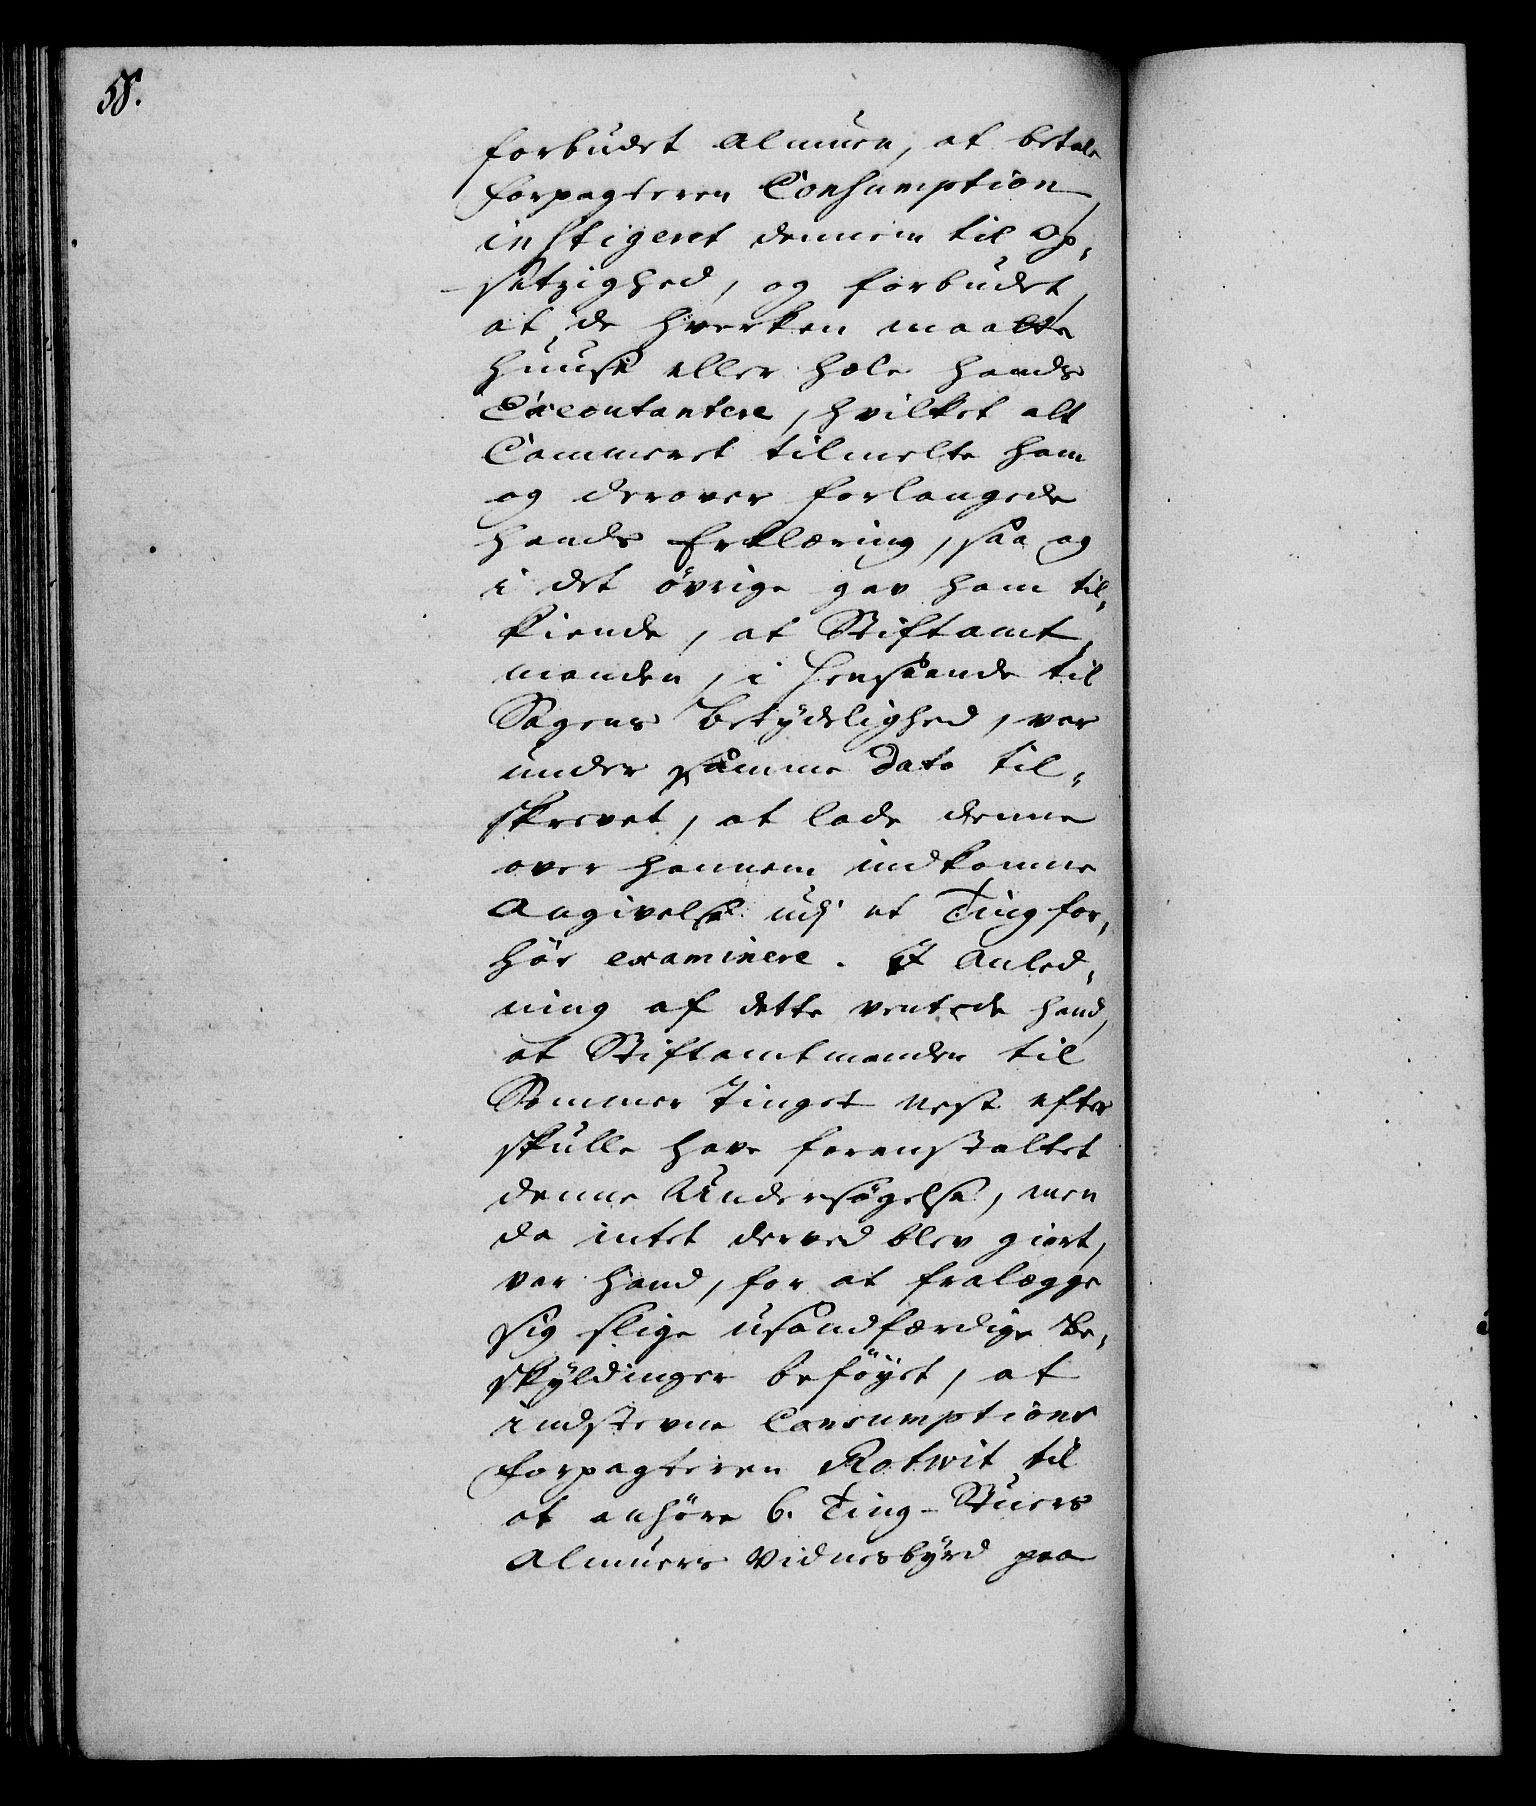 58.
forbudet Almuen, at betale
Forpagteren Consumption,
instigeret dennem til Op-
sætzighed, og forbudet,
at de hverken maatte
huuse eller hæle hands
Executantere, hvilket alt
Cammeret tilmelte ham
og derover forlangede
hands Erklæring, saa og
i det øvrige gav ham til-
kiende, at Stiftamt-
manden, i Henseende til
Sagens Betydelighed, var
under samme Dato til-
skrevet, at lade denne
over hannem indkomne
Angivelse udj et Tingfor-
hör examinere. I Anled-
ning af dette ventede hand,
at Stiftamtmanden til
Sommer Tinget nest efter
skulle have foranstaltet
denne Undersøgelse, men
da intet derved blev giort,
var hand, for at fralægge
sig slige usandfærdige Be-
skyldinger beføyet, at
indstevne Consumptions
Forpagteren Rotwit til
at anhøre 6. Ting-Stuers
Almuers Vidnesbyrd paa